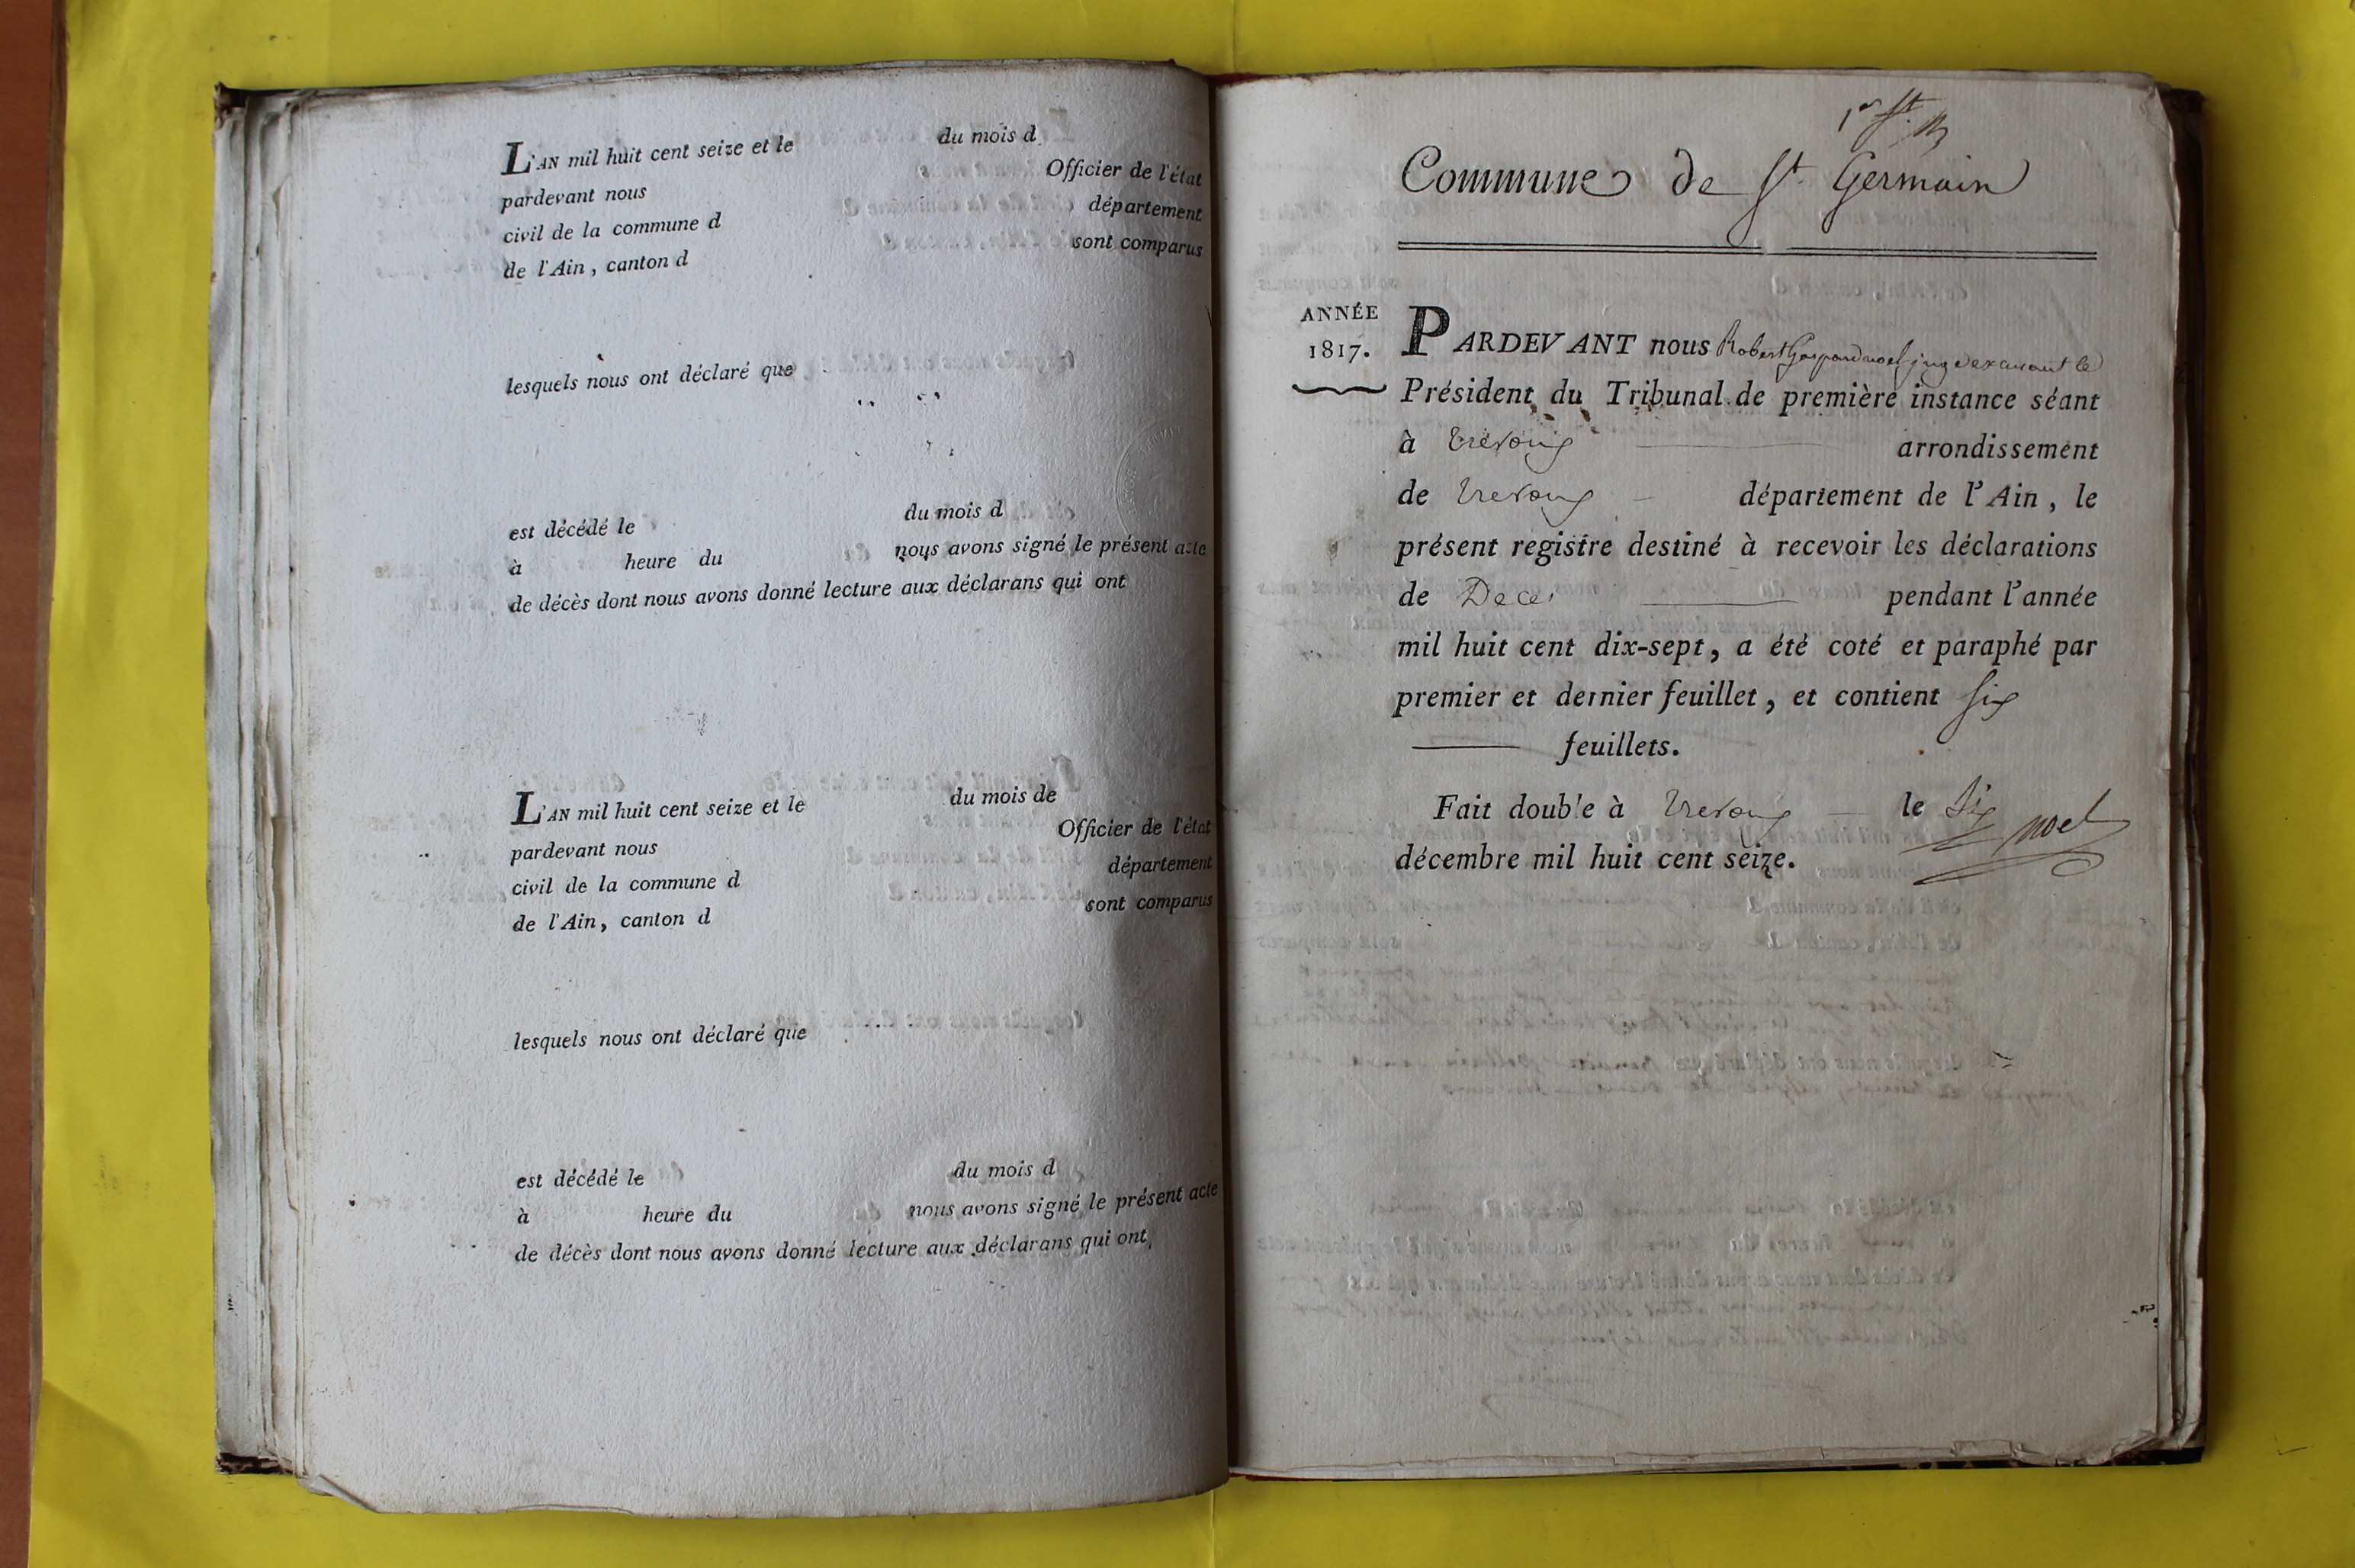 L'AN mil huit cent seize et le du mois d
pardevant nous Officier de l'état
civil de la commune d département
de l'Ain, canton d sont comparus
lesquels nous ont déclaré que
est décédé le du mois d
à heure du nous avons signé le présent acte
de décès dont nous avons donné lecture aux déclarans qui ont
L'AN mil huit cent seize et le du mois de
pardevant nous Officier de l'état
civil de la commune d département
de l'Ain, canton d sont comparus
lesquels nous ont déclaré que
est décédé le du mois d
à heure du nous avons signé le présent acte
de décès dont nous avons donné lecture aux déclarans qui ont
1er ft.
Commune de St Germain
ANNÉE
1817.
PARDEVANT nous Robert Gaspard noel juge exerçant le
Président du Tribunal de première instance séant
à trevoux arrondissement
de trevoux département de l'Ain, le
présent registre destiné à recevoir les déclarations
de Deces pendant l'année
mil huit cent dix-sept, a été coté et paraphé par
premier et dernier feuillet, et contient six
feuillets.
Fait double à trevoux le six
noel
décembre mil huit cent seize.